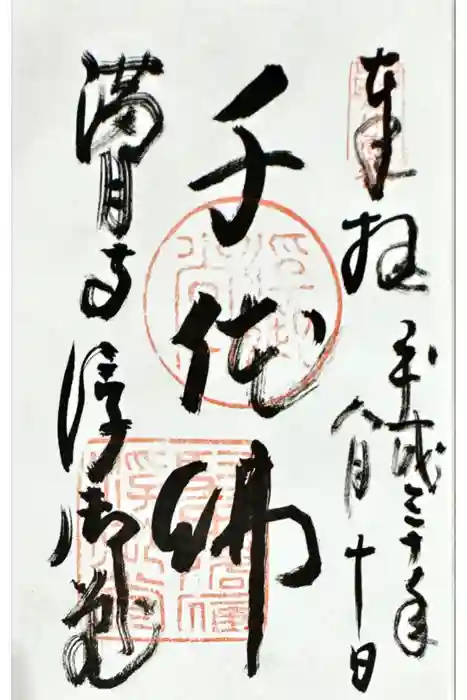 奉拝
平成三十年
八月十日
千体佛
満月寺浮御堂